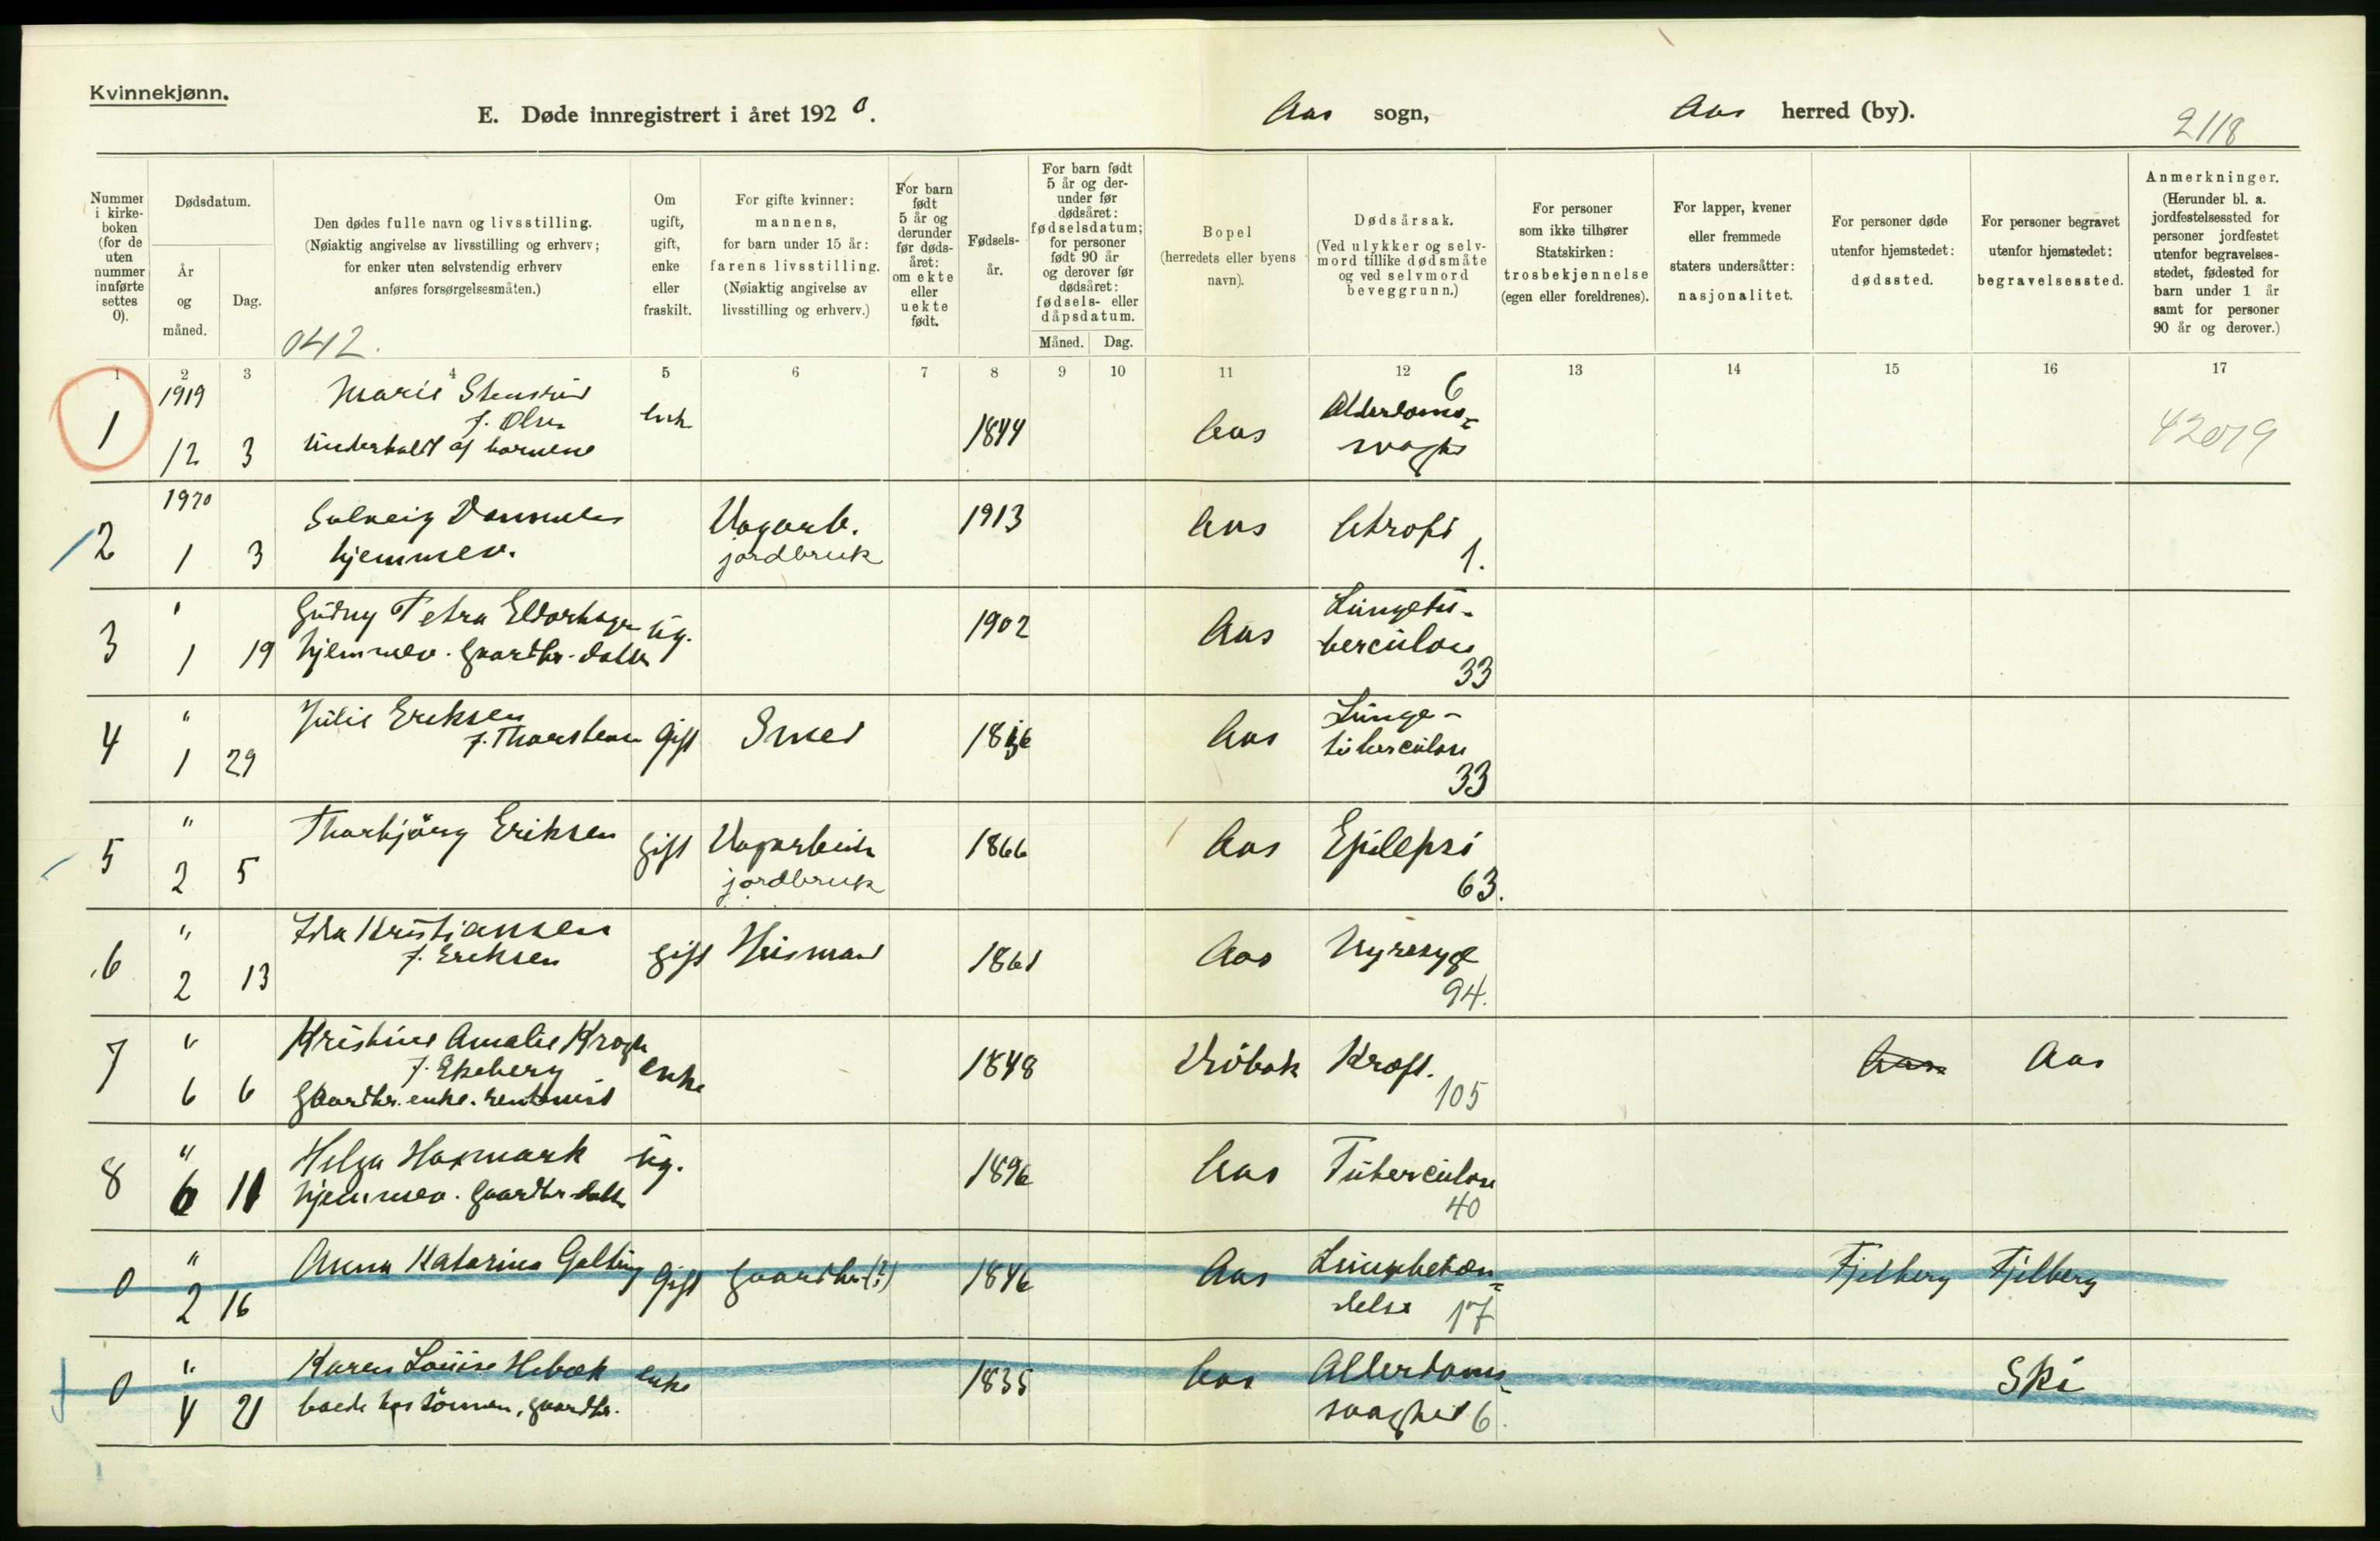 Kvinnekjønn.
E. Døde innregistrert i året 1920.
Aas sogn,
Aas herred (by).
2118
Nummer i kirkeboken (for de uten nummer innførte settes 0).
Dødsdatum.
År og måned.
Dag.
Den dødes fulle navn og livsstilling.
(Nøiaktig angivelse av livsstilling og erhverv;
for enker uten selvstendig erhverv
anføres forsørgelsesmåten.)
042.
Om ugift, gift, enke eller fraskilt.
For gifte kvinner:
mannens,
for barn under 15 år:
farens livsstilling.
(Nøiaktig angivelse av
livsstilling og erhverv.)
For barn født 5 år og derunder før dødsåret: om ekte eller uekte født.
Fødselsår.
For barn født 5 år og derunder før dødsåret: fødselsdatum; for personer født 90 år og derover før dødsåret: fødsels- eller dåpsdatum.
Måned. Dag.
Bopel
(herredets eller byens
navn).
Dødsårsak.
(Ved ulykker og selvmord tillike dødsmåte
og ved selvmord
beveggrunn.)
For personer
som ikke tilhører
Statskirken:
trosbekjennelse
(egen eller foreldrenes).
For lapper, kvener
eller fremmede
staters undersåtter:
nasjonalitet.
For personer døde
utenfor hjemstedet:
dødssted.
For personer begravet
utenfor hjemstedet:
begravelsessted.
Anmerkninger.
(Herunder bl. a.
jordfestelsessted for
personer jordfestet
utenfor begravelsesstedet, fødested for
barn under 1 år
samt for personer
90 år og derover.)
1 2 3 4 5 6 7 8 9 10 11 12 13 14 15 16 17
1 1919 12 3 Marie Stensrud f. Olsen Underholdt af barnene enke 1844 Aas Alderdoms= svaghed 6 42019
2 1920 1 3 Solveig hjemmev. Vogarb. jordbruk 1913 Aas Atrofi 1.
3 " 1 19 Gudny Petra hjemmev. gaardbr. datter ug. 1902 Aas Lungetu- berculose 33
4 " 1 29 Julie Eriksen f. Thorstensen gift Smed 18 6 Aas Lunge- tuberculose 33
5 " 2 5 Thorbjörg Eriksen gift jordbruk 1866 Aas Epilepsi 63.
6 " 2 13 Ida Kristiansen f. Eriksen gift Husmand 1861 Aas Nyresyge 94.
7 " 6 6 Kristine Amalie Krogh f. Ekeberg Gaardbr. enke. rentenist enke 1848 Dröbak Kræft. 105 Aas Aas
8 " 6 11 Helga Hasmark hjemmev. gaardbr. datter ug. 1896 Aas Tuberculose 40
0 " 2 16 Anna Katarina gift gaardbr. (?) 1846 Aas Lungebetæn= delse 17 Fjelberg Fjelberg
0 " 4 21 Karen Louise boede hos sönnen, gaardbr. enke 1835 Aas Alderdoms= svaghed 6. Ski